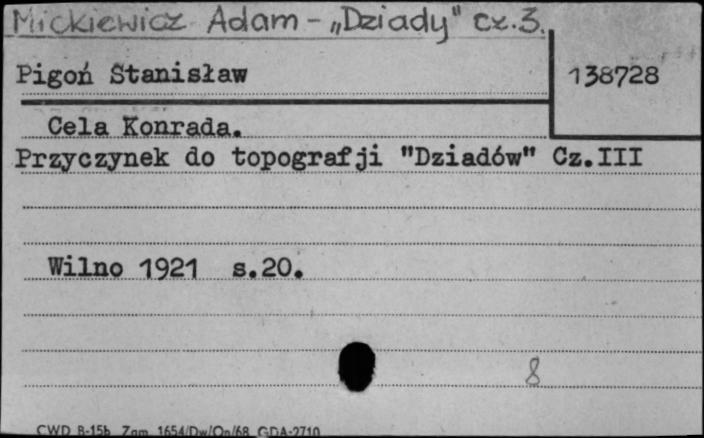 Mickiewicz Adam - „Dziady" cz. 3.
Pigoń Stanisław
138728
Cela Konrada.
Przyczynek do topografji "Dziadów" Cz.III
Wilno 1921 s.20.
8
CWD B-15b Zam. 1654/Dw/On/68 GDA-2710